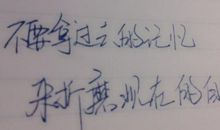 不要拿过去的记忆
来折磨现在的